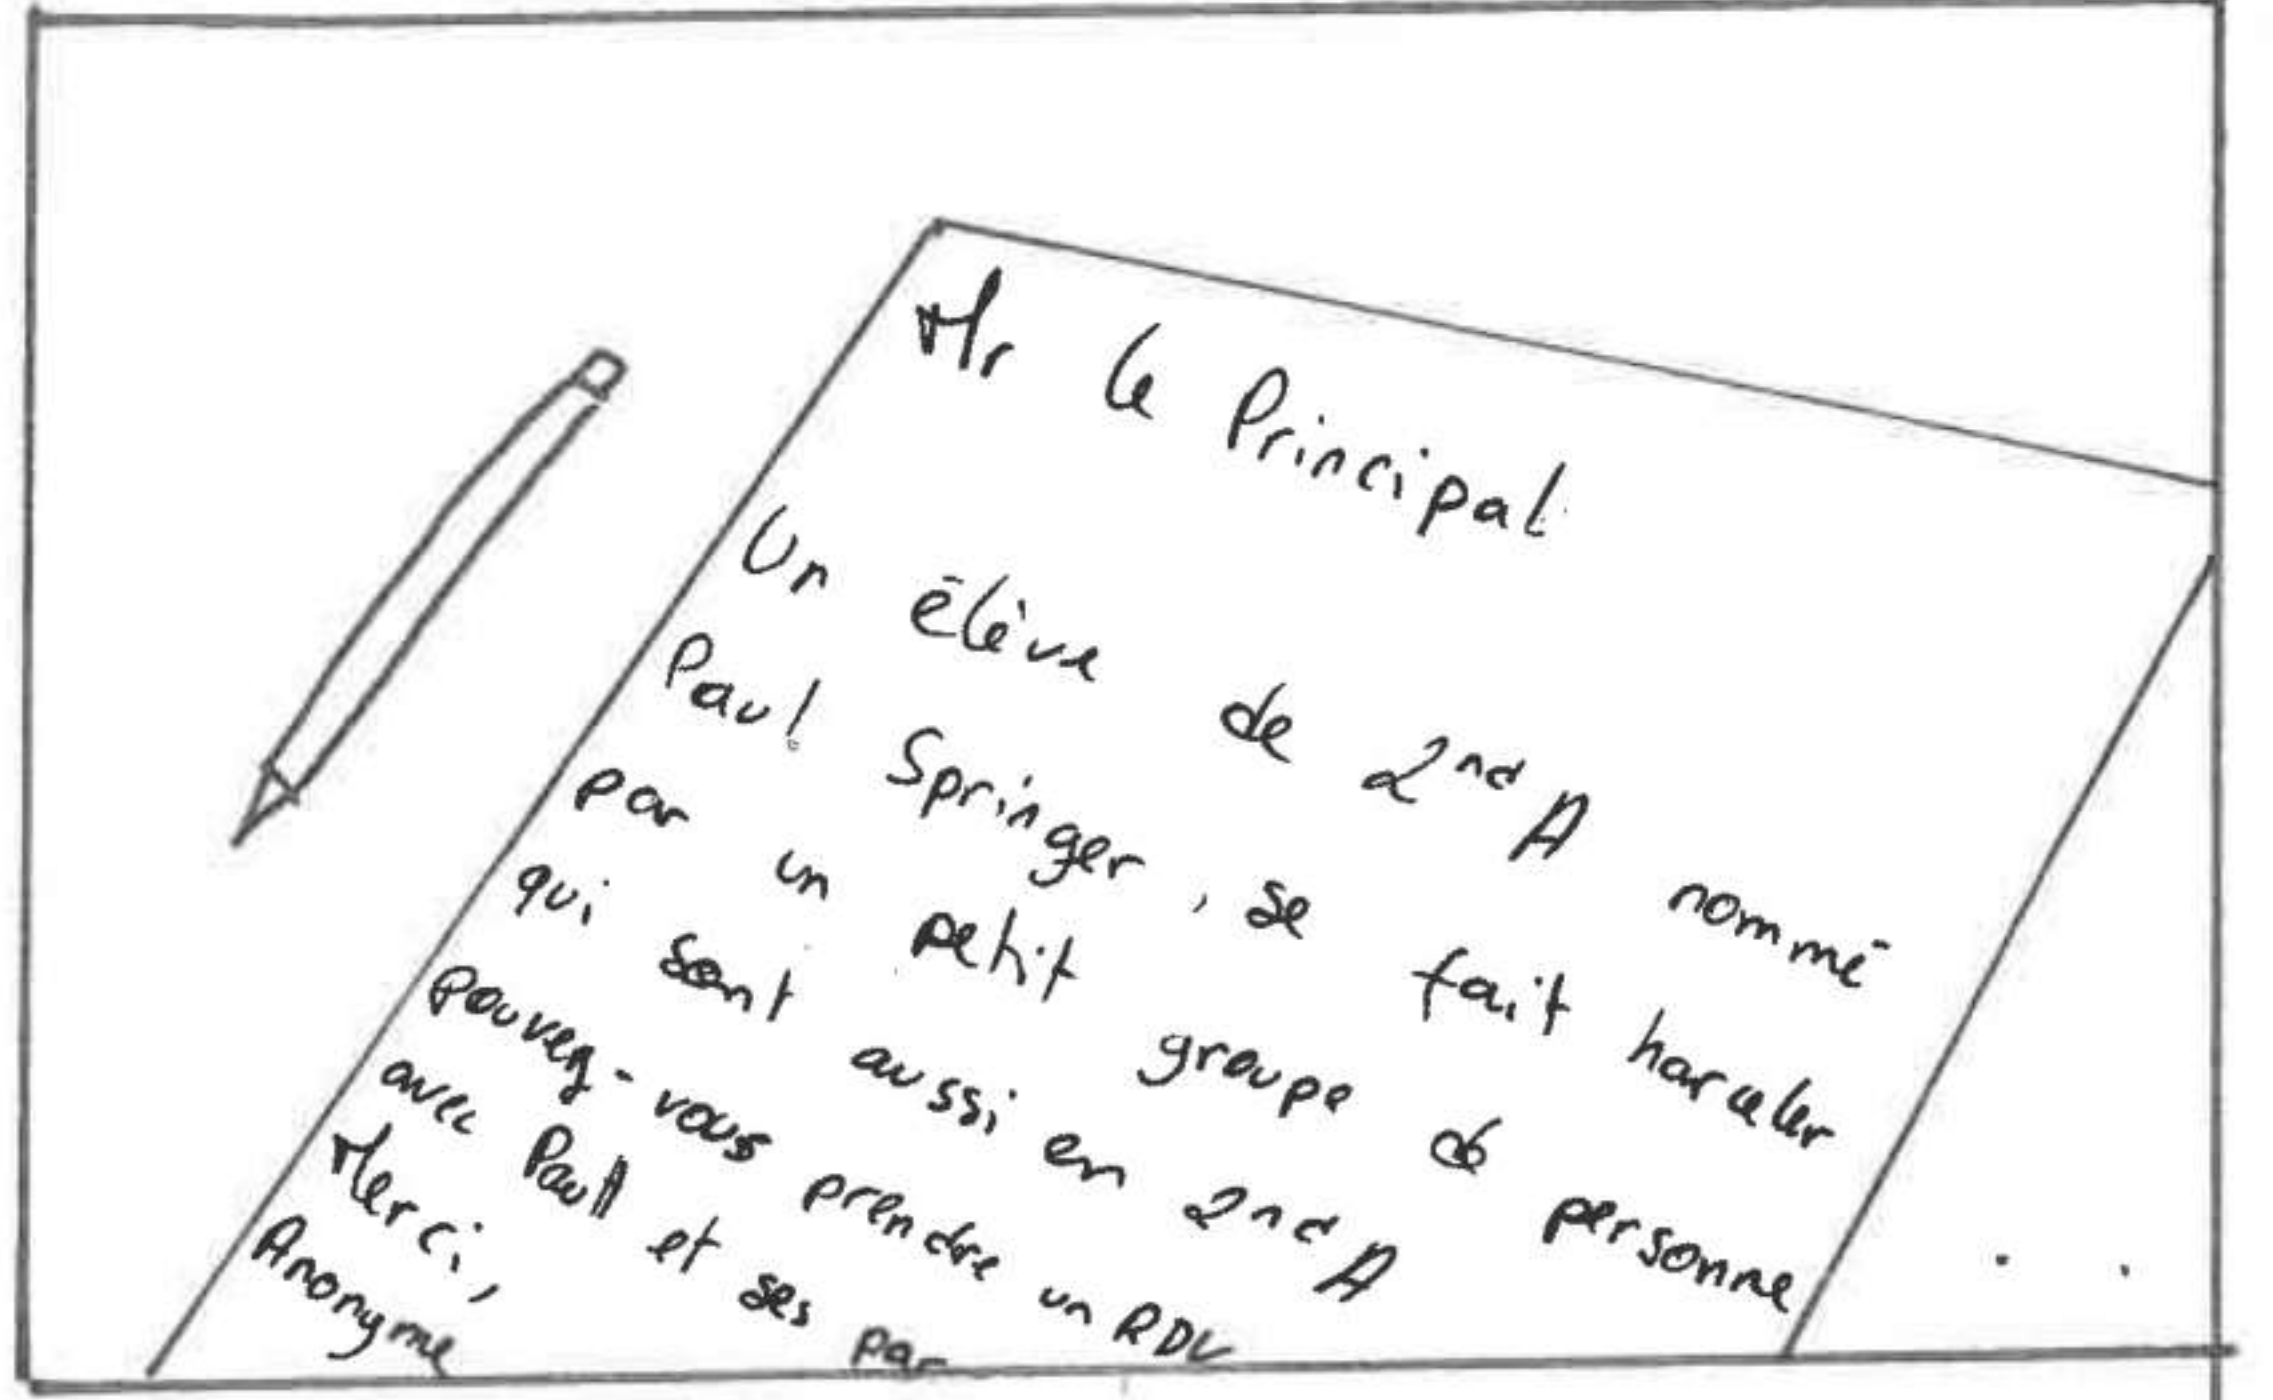 Mr le Principal
Un élève de 2nd A nommé
Paul Springer, se fait harceler
par un petit groupe de personne
qui sont aussi en 2nd A
pouvez-vous prendre un RDV
avec Paul et ses par
Merci,
Anonyme